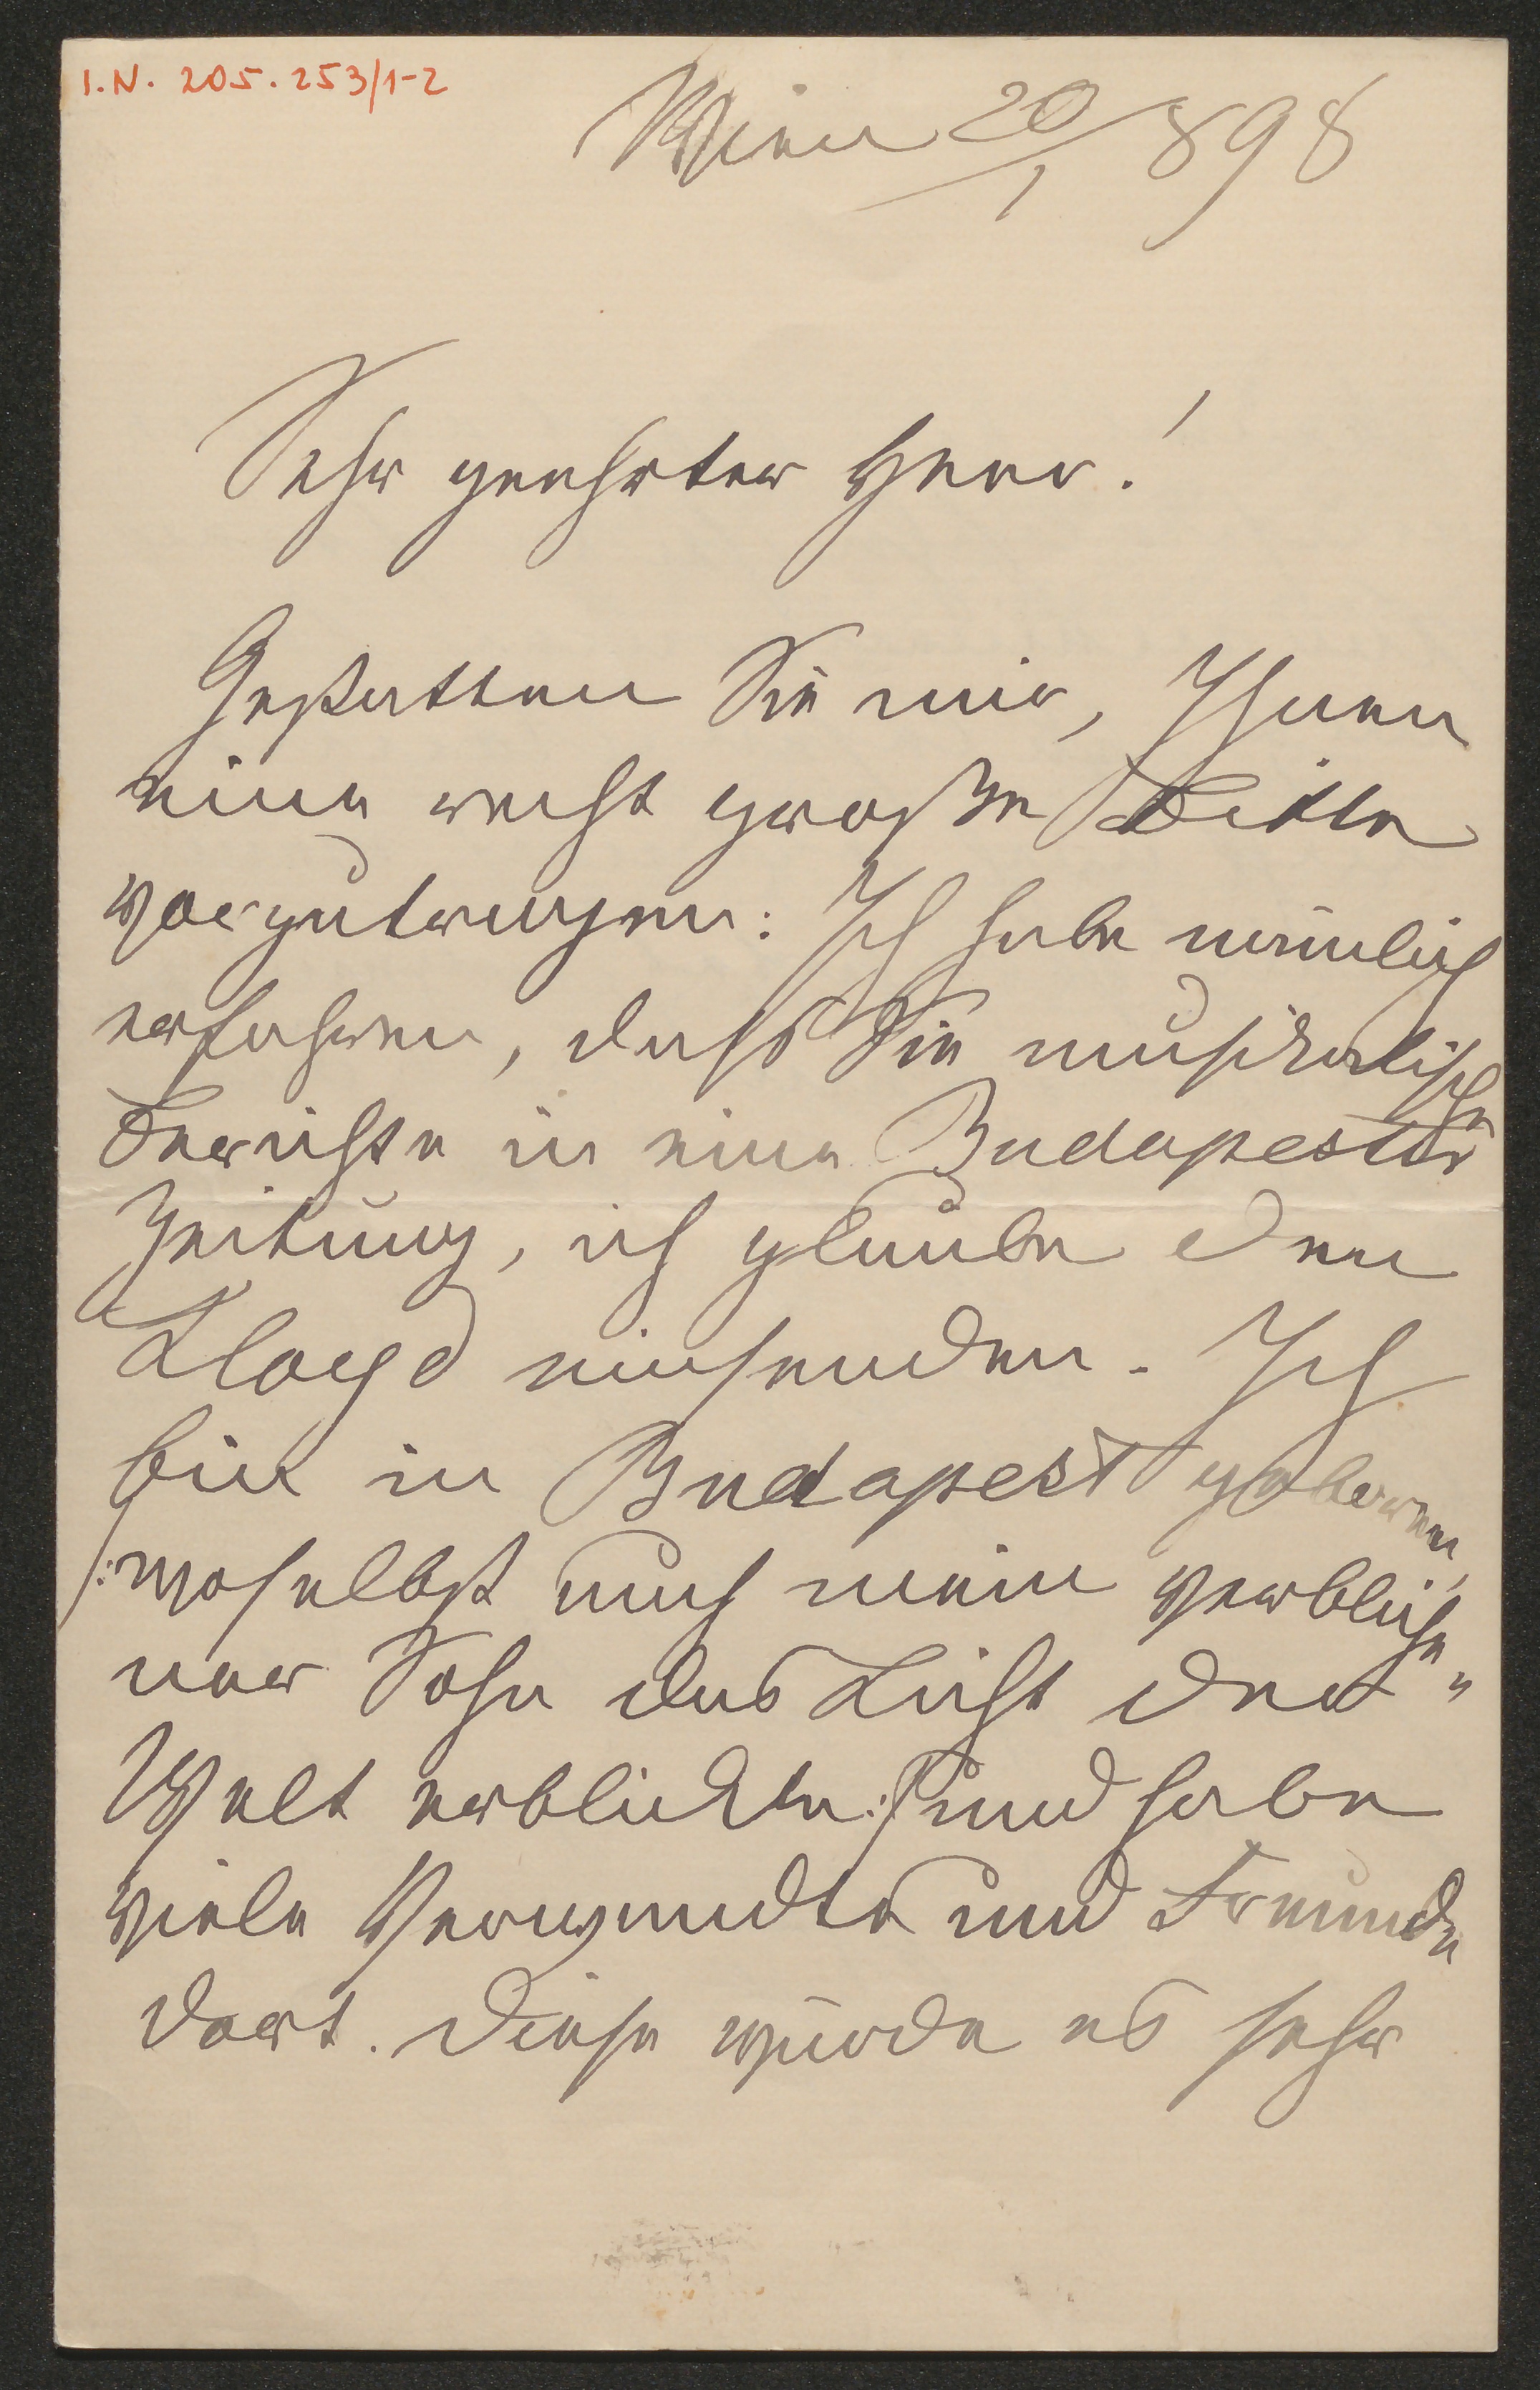 I.N. 205.253/1-2
Wien 20/1 898
Sehr geehrter Herr!
Gestatten Sie mir, Ihnen
eine recht große Bitte
vorzutragen: Ich habe nämlich
erfahren, dass Sie musikalische
Berichte in eine Budapester
Zeitung, ich glaube den
Lloyd einsenden. Ich
bin in Budapest geboren,
/: woselbst auch mein verbliche„
ner Sohn das Licht der
Welt erblickte :/ und habe
viele Verwandte und Freunde
dort. Diese würde es sehr